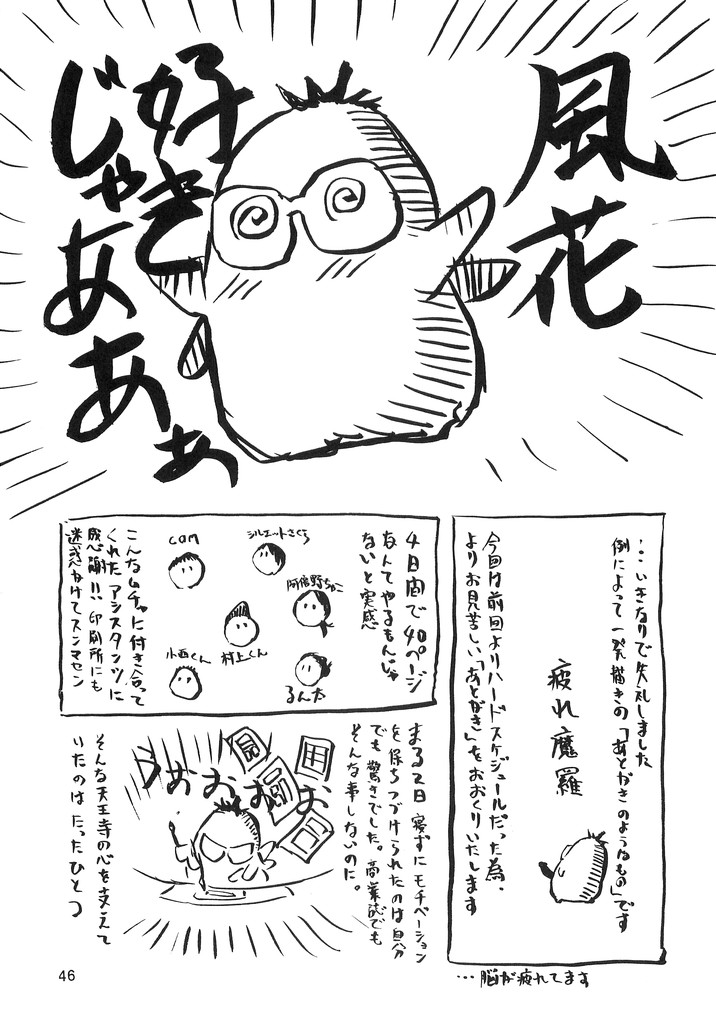 風花
好き
じゃ
あああぁ
…いきなりで失礼しました
例によって一発描きの「あとがきのようなもの」です
疲れ魔羅
今回は前回よりハードスケジュールだった為、
よりお見苦しい「あとがき」をおおくりいたします
…脳が疲れてます
4日間で40ページ
なんてやるもんじゃ
ないと実感
シルエットさくら
cam
阿倍野ちゃこ
村上くん
小西くん
るん太
こんなムチャに付き合って
くれたアシスタンツに
感謝!!印刷所にも
迷惑かけてスンマセン
まる2日寝ずにモチベーション
を保ちつづけられたのは自分
でも驚きでした。商業誌でも
そんな事しないのに。
うおおおお
そんな天王寺の心を支えて
いたのはたったひとつ
46